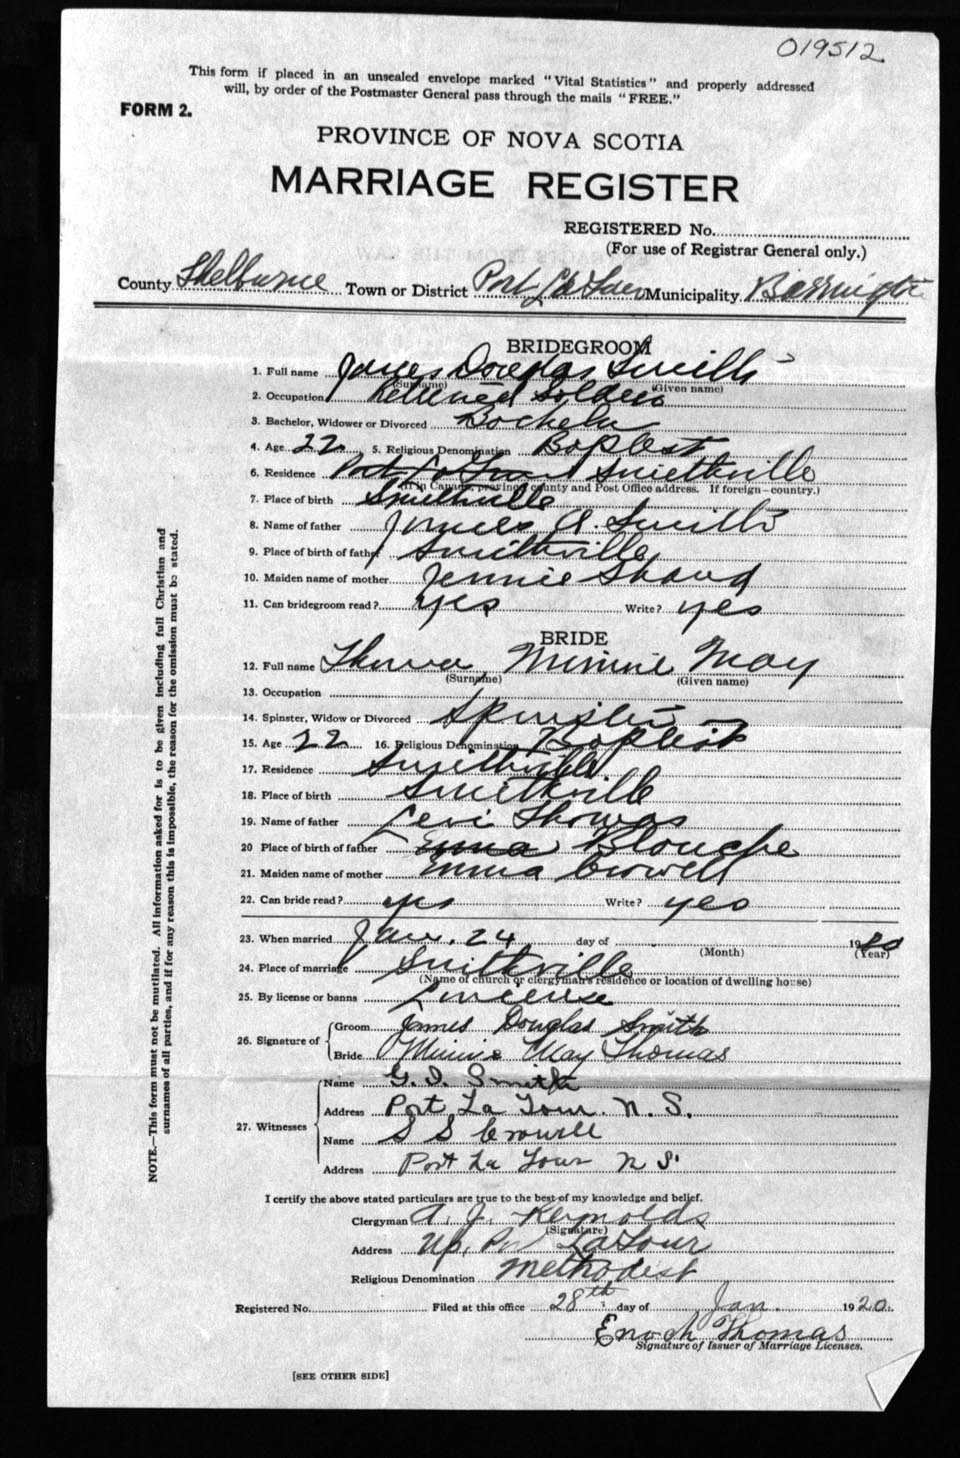 019512
This form if placed in an unsealed envelope marked "Vital Statistics" and properly addressed
will, by order of the Postmaster General pass through the mails "FREE."
FORM 2.
PROVINCE OF NOVA SCOTIA
MARRIAGE REGISTER
REGISTERED No.
(For use of Registrar General only.)
County Shelburne Town or District Port La Tour Municipality Barrington
BRIDEGROOM
1. Full name James Douglas Smith
(Surname) (Given name)
2. Occupation Returned Soldier
3. Bachelor, Widower or Divorced Bachelor
4. Age 22 5. Religious Denomination Baptist
6. Residence Port La Tour Smithville
(If in Canada, province, county and Post Office address. If foreign—country.)
7. Place of birth Smithville
8. Name of father James A. Smith
9. Place of birth of father Smithville
10. Maiden name of mother Jennie Shand
11. Can bridegroom read? yes Write? yes
BRIDE
12. Full name Thomas Minnie May
(Surname) (Given name)
13. Occupation
14. Spinster, Widow or Divorced Spinster
15. Age 22 16. Religious Denomination Baptist
17. Residence Smithville
18. Place of birth Smithville
19. Name of father Levi Thomas
20 Place of birth of father Emma Blanche
21. Maiden name of mother Emma Crowell
22. Can bride read? yes Write? yes
23. When married Jan. 24 day of 1920
(Month) (Year)
24. Place of marriage Smithville
(Name of church or clergyman's residence or location of dwelling house)
25. By license or banns Lincense
26. Signature of Groom James Douglas Smith
Bride Minnie May Thomas
27. Witnesses Name G. I. Smith
Address Port La Tour. N. S.
Name S S Crowell
Address Port La Tour N S.
I certify the above stated particulars are true to the best of my knowledge and belief.
Clergyman A. J. Reynolds
(Signature)
Address Up. Port LaTour
Religious Denomination Methodist
Registered No. Filed at this office 28th day of Jan. 1920.
Enoch Thomas
Signature of Issuer of Marriage Licenses.
[SEE OTHER SIDE]
NOTE.—This form must not be mutilated. All information asked for is to be given including full Christian and
surnames of all parties, and if for any reason this is impossible, the reason for the omission must be stated.